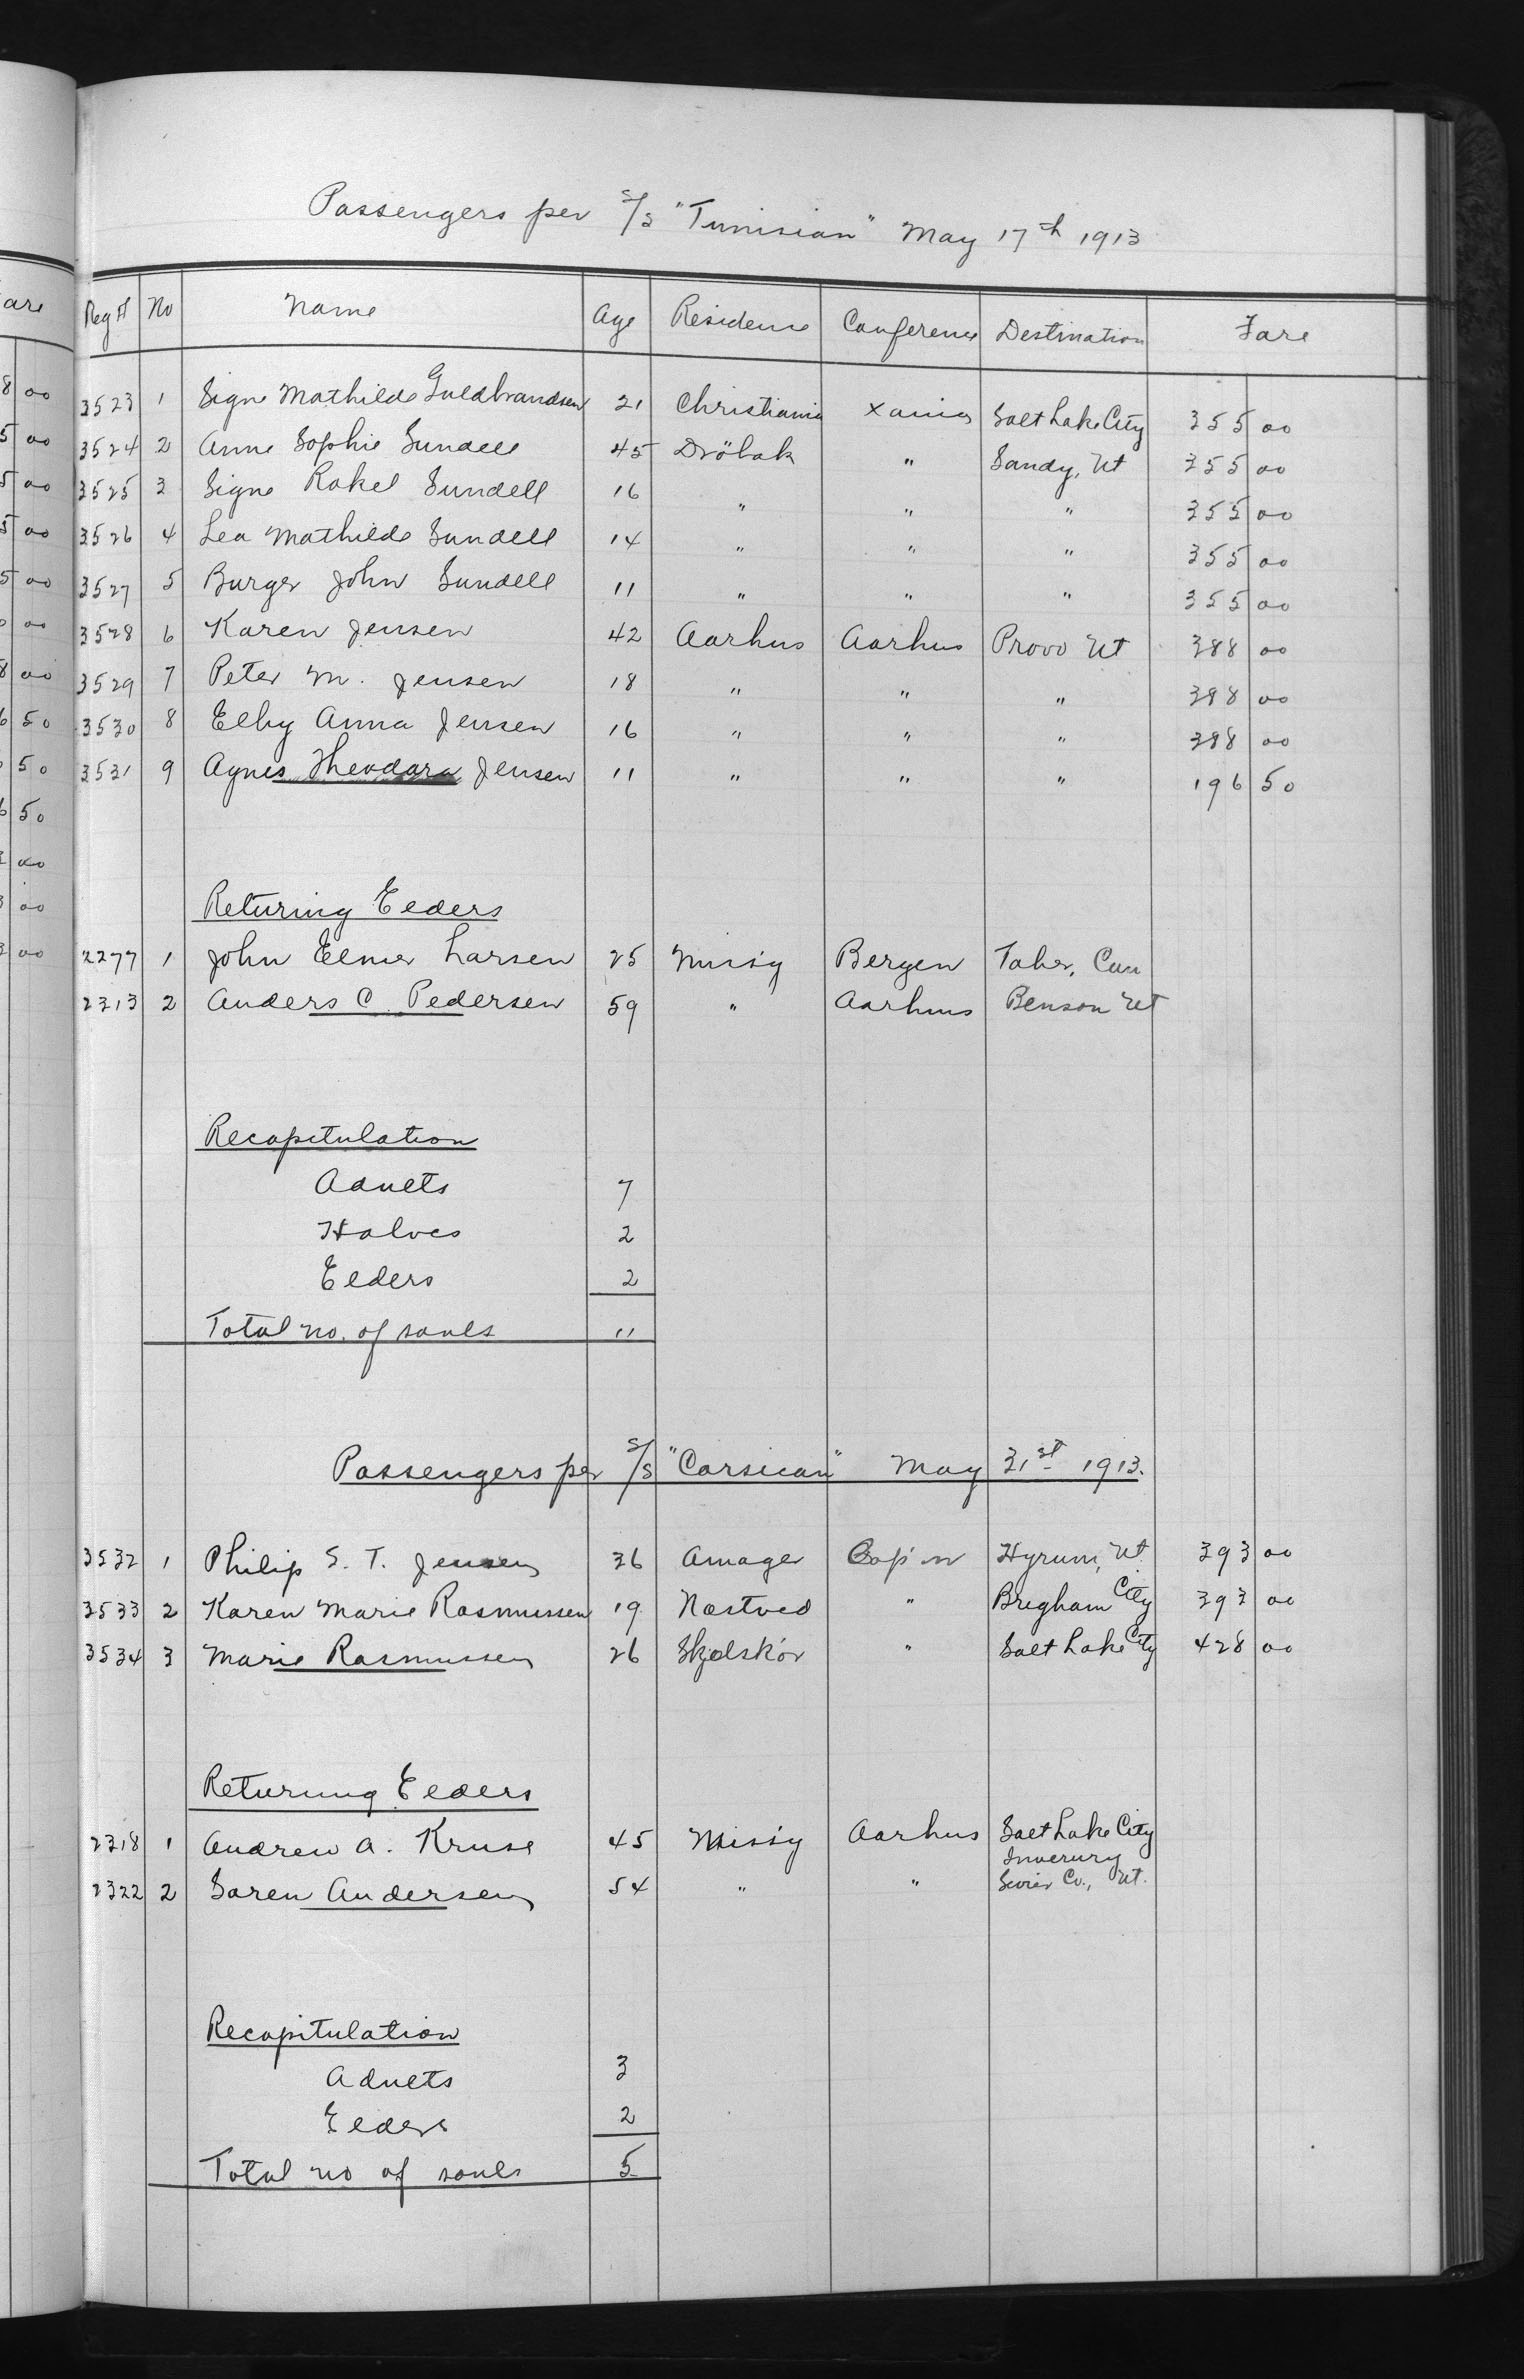 Passengers per S/S "Tunisian" May 17th 1913
Reg # No Name Age Residence Conference Destination Fare
3523 1 Signe Mathilde Guldbrandsen 21 Christiania Xania Salt Lake City 355 00
3524 2 Anne Sophie Sundell 45 Dröbak " Sandy, Ut 355 00
3525 3 Signe Rakel Sundell 16 " " " 355 00
3526 4 Lea Mathilde Sundell 14 " " " 355 00
3527 5 Burger John Sundell 11 " " " 355 00
3528 6 Karen Jensen 42 Aarhus Aarhus Provo Ut 388 00
3529 7 Peter M. Jensen 18 " " " 388 00
3530 8 Elby Anna Jensen 16 " " " 388 00
3531 9 Agnes Theodora Jensen 11 " " " 196 50
Returing Elders
2277 1 John Elmer Larsen 25 Miss'y Bergen Taber, Can
2313 2 Anders C. Pedersen 59 " Aarhus Benson Ut
Recapitulation
Adults 7
Halves 2
Elders 2
Total no. of souls 11
Passengers per S/S "Corsican" May 31st 1913.
3532 1 Philip S. T. Jensen 36 Amager Cop'n Hyrum, Ut 393 00
3533 2 Karen Marie Rasmussen 19 Næstved " Brigham City 393 00
3534 3 Marie Rasmussen 26 Skjelskör " Salt Lake City 428 00
Returning Elders
2318 1 Andrew A. Kruse 45 Miss'y Aarhus Salt Lake City
Inverury
2322 2 Soren Andersen 54 " " Sevier Co., Ut.
Recapitulation
Adults 3
Elders 2
Total no of souls 5